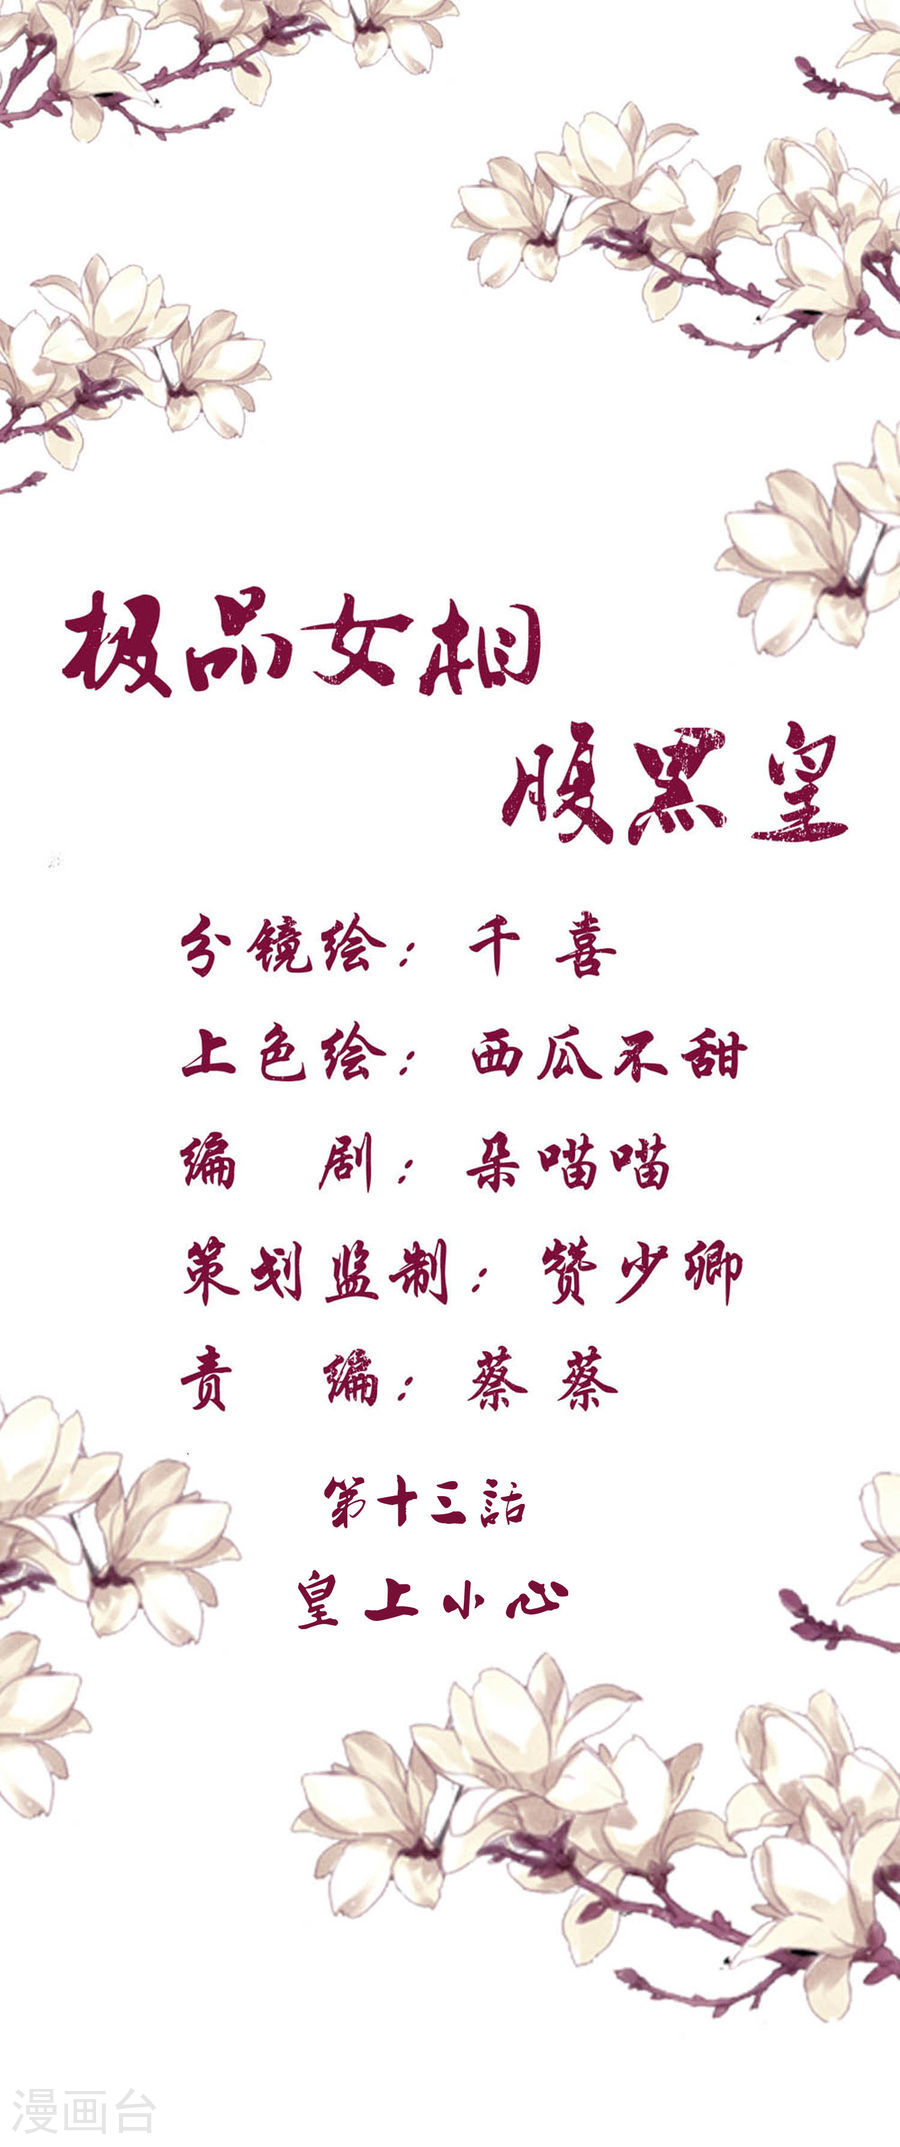 极品女相
腹黑皇
分镜绘：千喜
上色绘：西瓜不甜
编　剧：朵喵喵
策划监制：赞少卿
责　编：蔡蔡
第十三話
皇上小心
漫画台